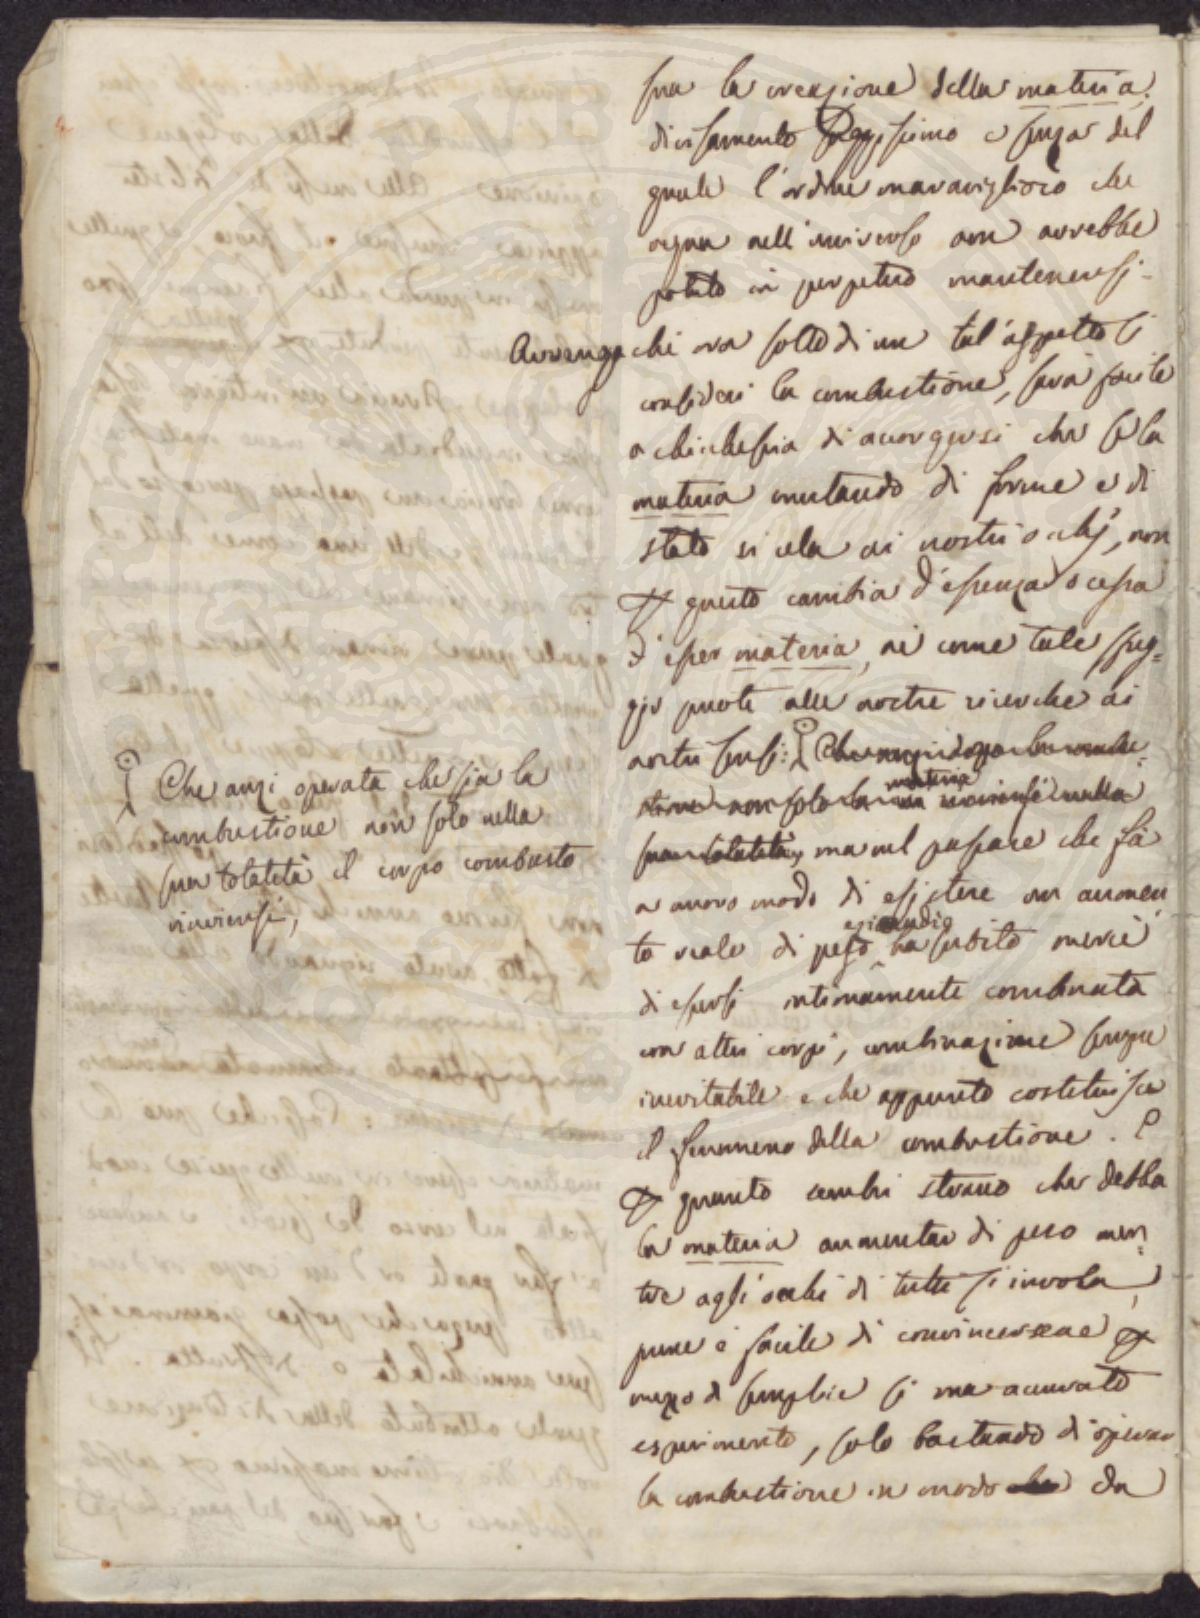 sua la creazione della materia;
divisamento saggissimo e senza del
quale l'ordine maraviglioso che
regna nell'universo non avrebbe
potuto in perpetuo mantenersi.
Avvengachè ora sotto di un tal'aspetto si
consideri la combustione, sarà facile
a chichesia di accorgersi che se la
materia mutando di forme e di
stato si cela ai nostri occhj, non
per questo cambia d'essenza o cessa
d'esser materia, nè come tale sfug=
gir puote alle nostre ricerche ai
nostri sensi: Che anzi dopo la combu=
stione non solo la materia rinviensi nella
sua totalità, ma nel passare che fà
a nuovo modo di esistere un aumen
to reale di peso eziandio ha subito mercè
di essersi intimamente combinata
con altri corpi, combinazione sempre
inevitabile e che appunto costituisce
il fenomeno della combustione. E
per quanto sembri strano che debba
la materia aumentar di peso men=
tre agli occhi di tutti s'invola,
pure è facile di convincersene per
mezzo di semplice sì ma accurato
esperimento, solo bastando di operar
la combustione in modo da
Che anzi operata che sia la
combustione non solo nella
sua totalità il corpo combusto
rinviensi,